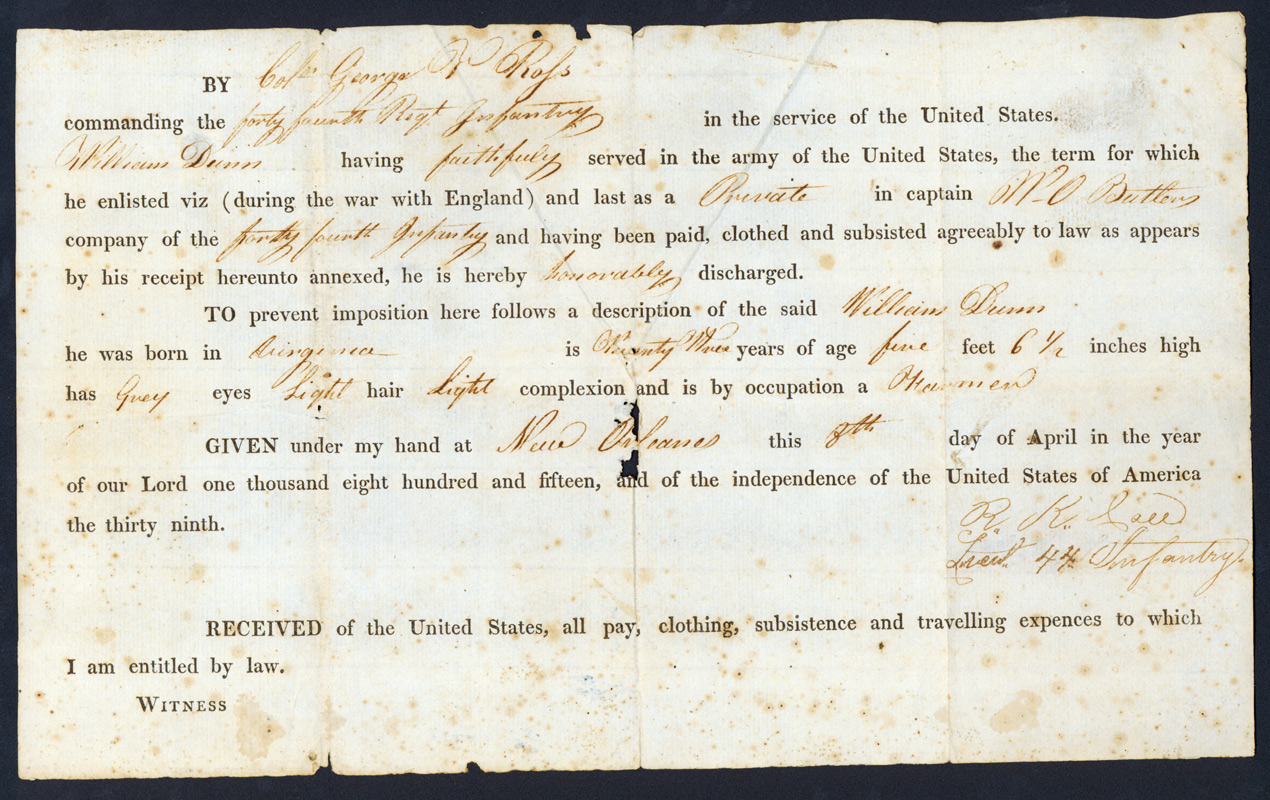 BY Colo George T Ross
commanding the forty fourth Regt Infantry in the service of the United States.
William Dunn having faithfuly served in the army of the United States, the term for which
he enlisted viz (during the war with England) and last as a Private in captain Wm O Butlers
company of the forty fourth Infanty and having been paid, clothed and subsisted agreeably to law as appears
by his receipt hereunto annexed, he is hereby honorably discharged.
TO prevent imposition here follows a description of the said William Dunn
he was born in Virginia is Twenty three years of age five feet 6 1/2 inches high
has Grey eyes Light hair Light complexion and is by occupation a Farmer
GIVEN under my hand at New Orleans this 8th day of April in the year
of our Lord one thousand eight hundred and fifteen, and of the independence of the United States of America
the thirty ninth.
R. K. Call
Lieut 44 Infantry.
RECEIVED of the United States, all pay, clothing, subsistence and travelling expences to which
I am entitled by law.
WITNESS